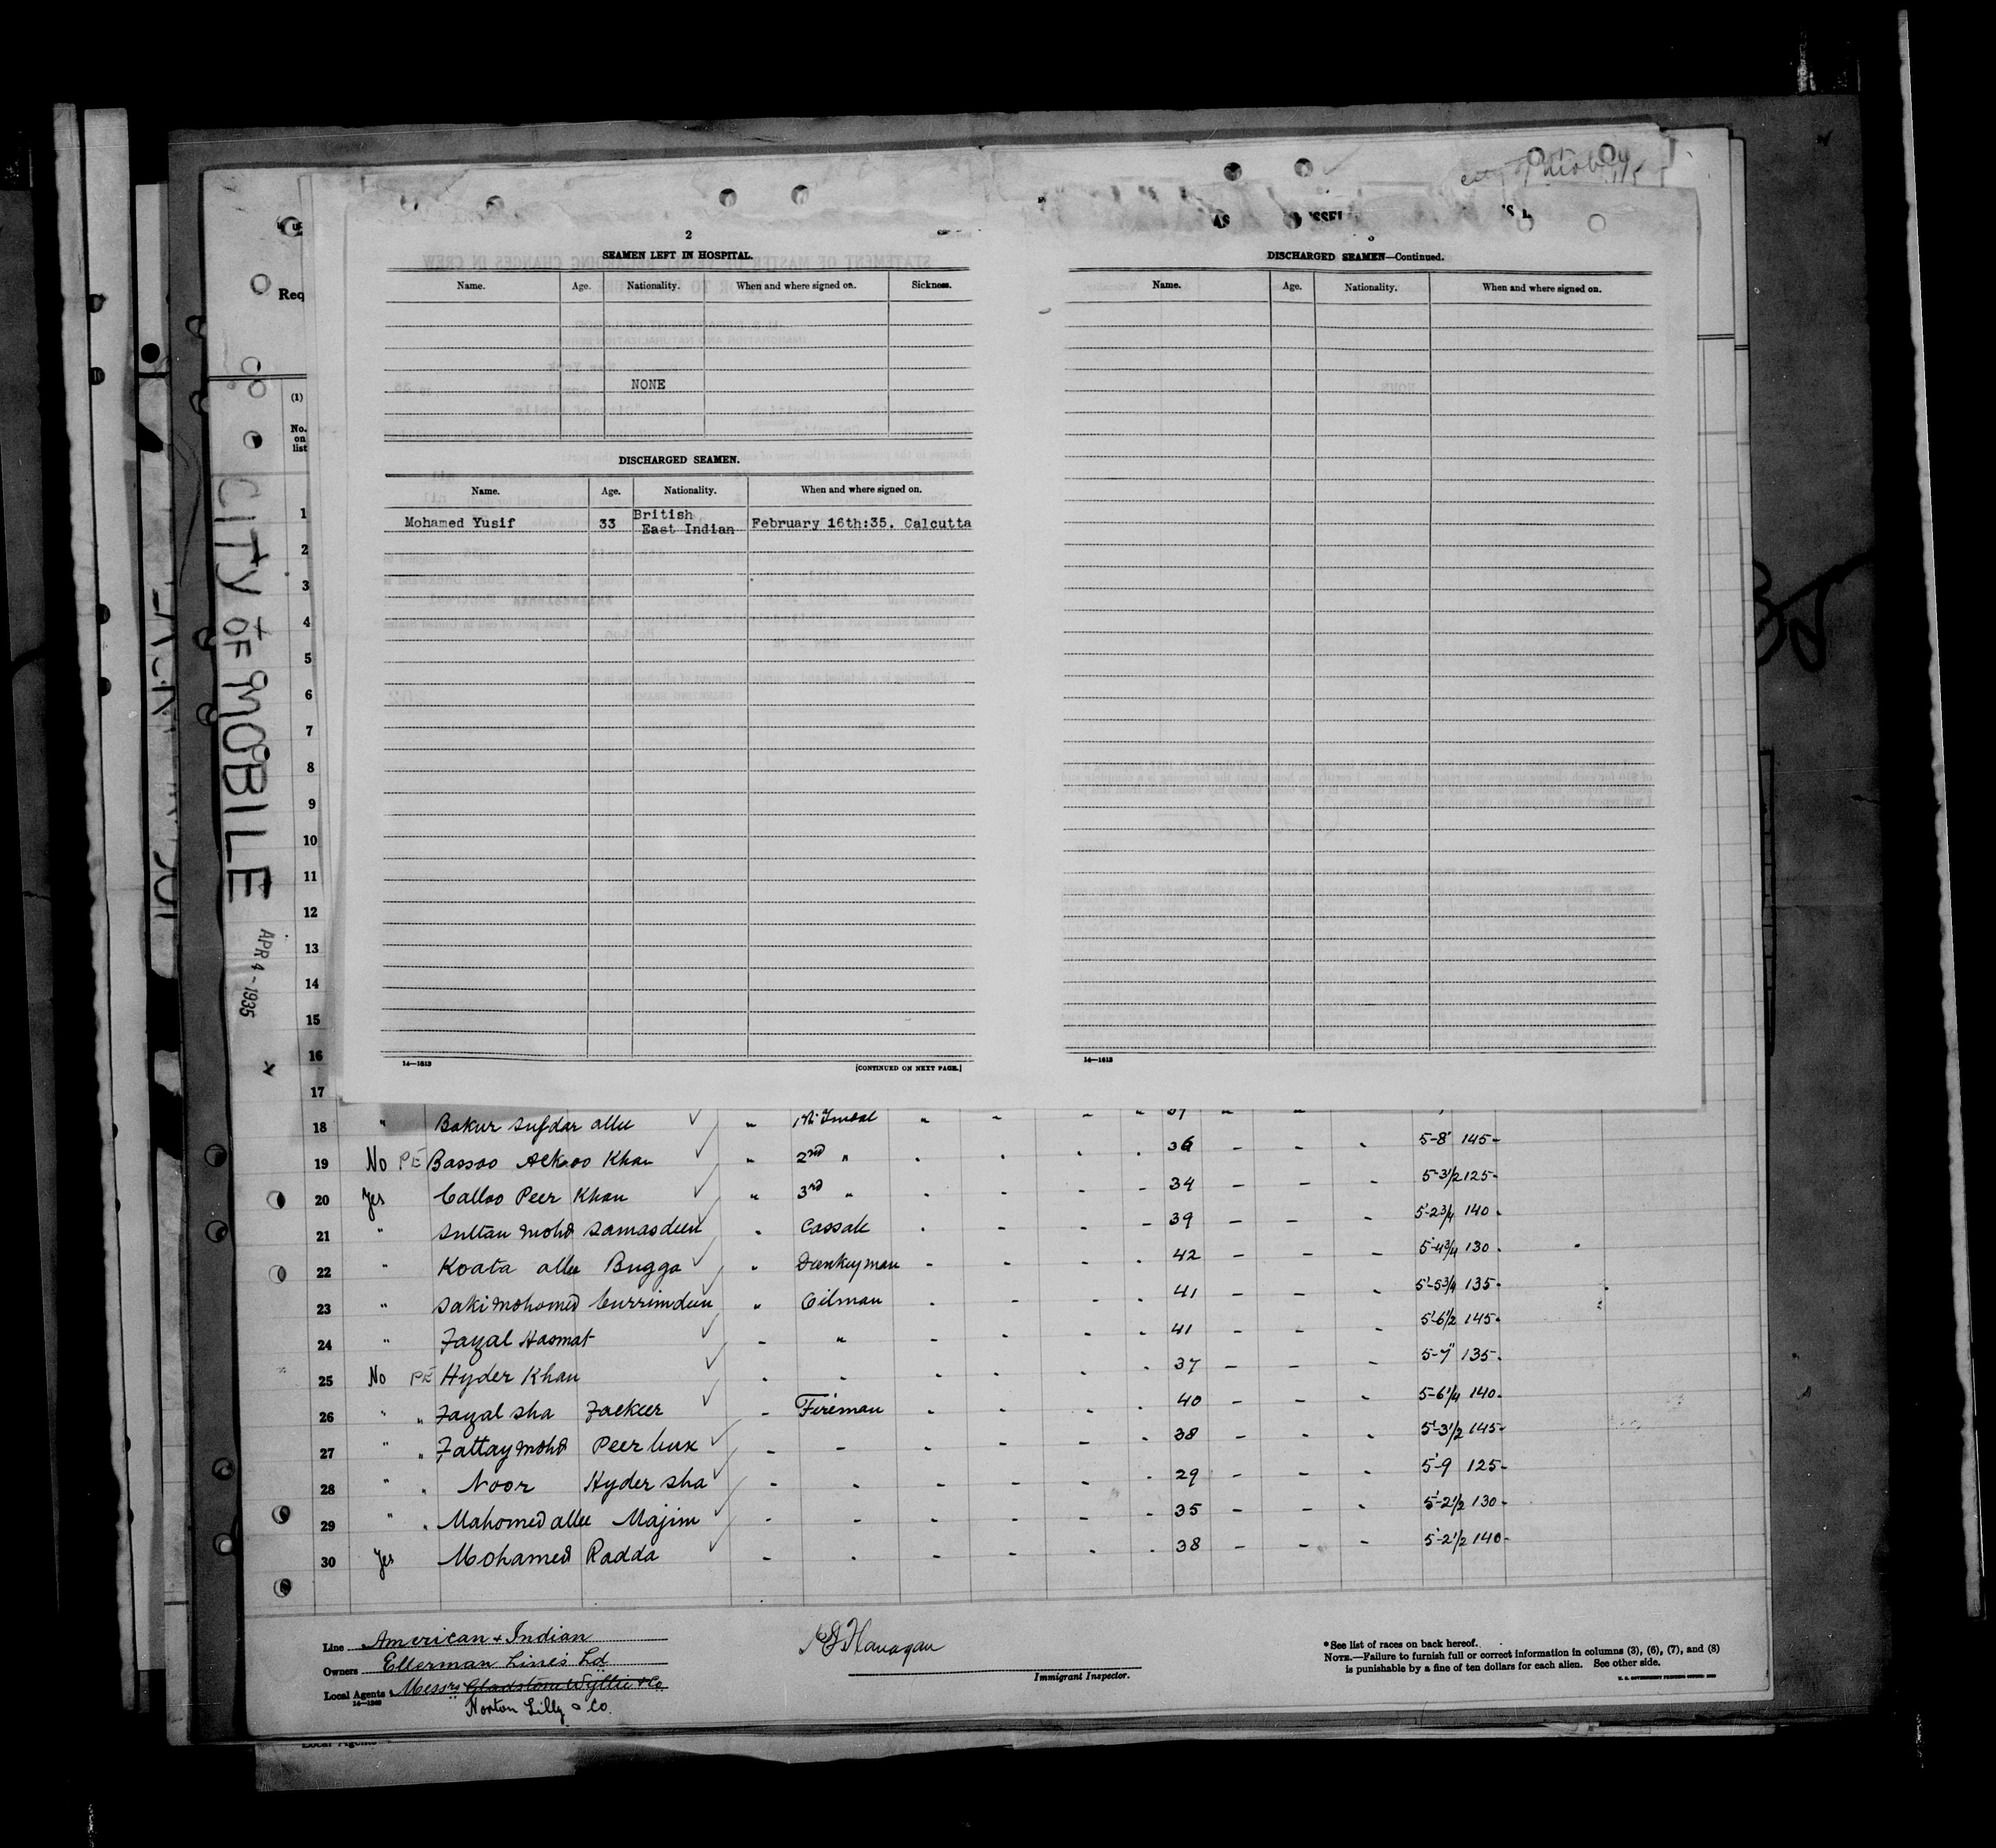 CITY OF MOBILE
APR 4 - 1935
Req
(1)
No. on list
2
SEAMEN LEFT IN HOSPITAL.
Name. Age. Nationality. When and where signed on. Sickness.
NONE
DISCHARGED SEAMEN.
Name. Age. Nationality. When and where signed on.
Mohamed Yusif 33 British East Indian February 16th:35. Calcutta
14—1613
[CONTINUED ON NEXT PAGE.]
DISCHARGED SEAMEN—Continued.
Name. Age. Nationality. When and where signed on.
14—1613
1
2
3
4
5
6
7
8
9
10
11
12
13
14
15
16
17
18 " Bakur Sufdar allee "
19 No PE Bassoo Khan " 2nd " 36 - - 5-8 145-
20 Yes Calloo Peer Khan " 3rd " 34 - - 5-3 1/2 125-
21 " Sultan Mohd Samasdeen " Cassab 39 - - 5-2 3/4 140
22 " Koata allee Bugga " Donkeyman 42 - - 5-4 3/4 130
23 " Saki Mohamed Currimdeen " Oilman 41 - - 5-5 3/4 135
24 " Fazal Hasmat - " 41 - - 5-6 1/2 145
25 No PE Hyder Khan 37 - - 5-7" 135
26 " " Fazal Sha Fackeer - Fireman 40 - - 5-6 1/4 140
27 " " Fattay Mohd Peer bux - - 38 - - 5-3 1/2 145-
28 " " Noor Hyder Sha - - 29 - - 5-9 125-
29 " " Mahomed allee Majim - - 35 - - 5-2 1/2 130-
30 Yes Mohamed Radda - - 38 - - 5-2 1/2 140-
Line American & Indian
Owners Ellerman Lines Ld
Local Agents Messrs Gladstone Wyllie & Co
14—1240
Norton Lilly & Co.
Immigrant Inspector.
*See list of races on back hereof.
NOTE.—Failure to furnish full or correct information in columns (3), (6), (7), and (8)
is punishable by a fine of ten dollars for each alien. See other side.